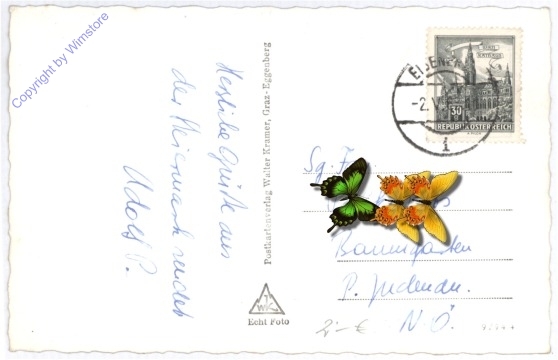 Copyright by Wimstore
Herzliche Grüße aus
der Steiermark sendet
Adolf P.
Postkartenverlag Walter Kramer, Graz-Eggenberg
WK
Echt Foto
WIEN
RATHAUS
30
REPUBLIK ÖSTERREICH
EISENER
-2. V
i
Sg. Fam.
Baumgarten
P. Judenau
N.Ö.
2,- €